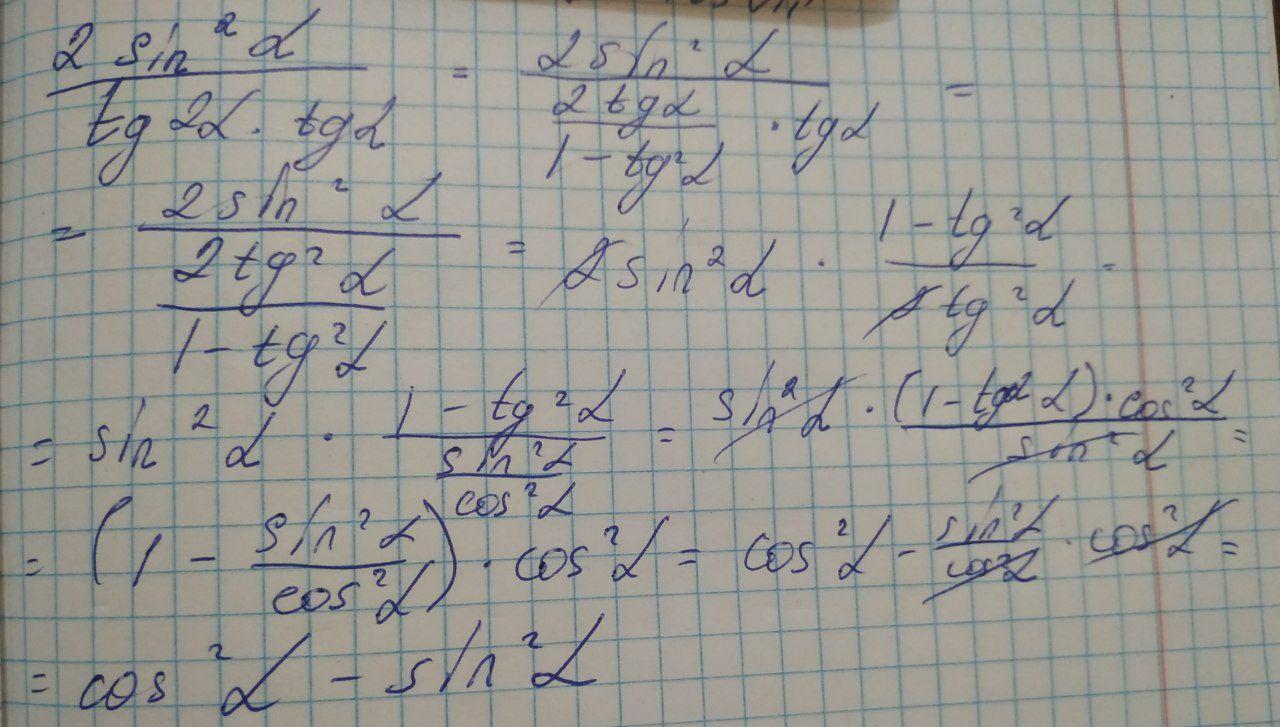 2 sin² α / (tg 2α · tg α) = 2 sin² α / ((2 tg α / (1 - tg² α)) · tg α) =
= 2 sin² α / (2 tg² α / (1 - tg² α)) = 2 sin² α · (1 - tg² α) / (2 tg² α) =
= sin² α · (1 - tg² α) / (sin² α / cos² α) = sin² α · (1 - tg² α) · cos² α / sin² α =
= (1 - sin² α / cos² α) · cos² α = cos² α - sin² α / cos² α · cos² α =
= cos² α - sin² α